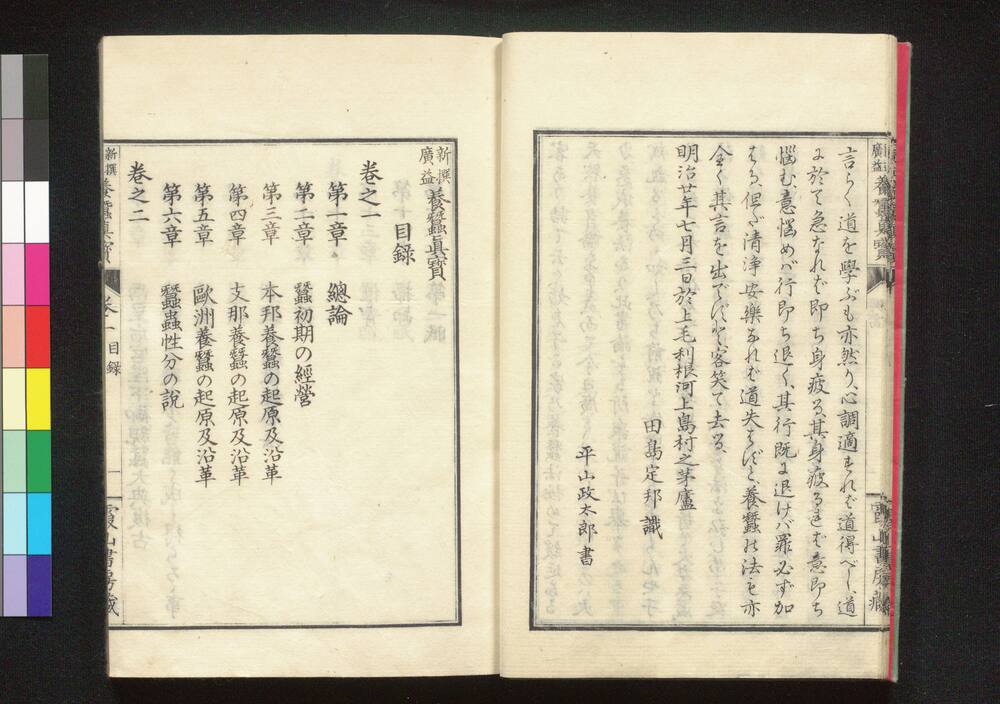 新撰
廣益
養蠶眞寳
霞山書房藏
言らく道を學ぶも亦然り、心調適すれば道得べし、道
に於そ急なれば即ち身疲る、其身疲るれば意即ち
惱む、意惱めバ行即ち退く、其行既に退けバ罪必ず加
はる、但だ清淨安樂なれば道失はずと、養蠶の法も亦
全く其言を出でずと、客笑て去る、
明治廿年七月三日於上毛利根河上島村之茅廬
田島定邦識
平山政太郎書
新撰
廣益
養蠶眞寳
目錄
卷之一
第一章 總論
第二章 蠶初期の經營
第三章 本邦養蠶の起原及沿革
第四章 支那養蠶の起原及沿革
第五章 歐洲養蠶の起原及沿革
第六章 蠶蟲性分の說
卷之二
新撰
養蠶眞寳
卷一目錄
霞山書房藏